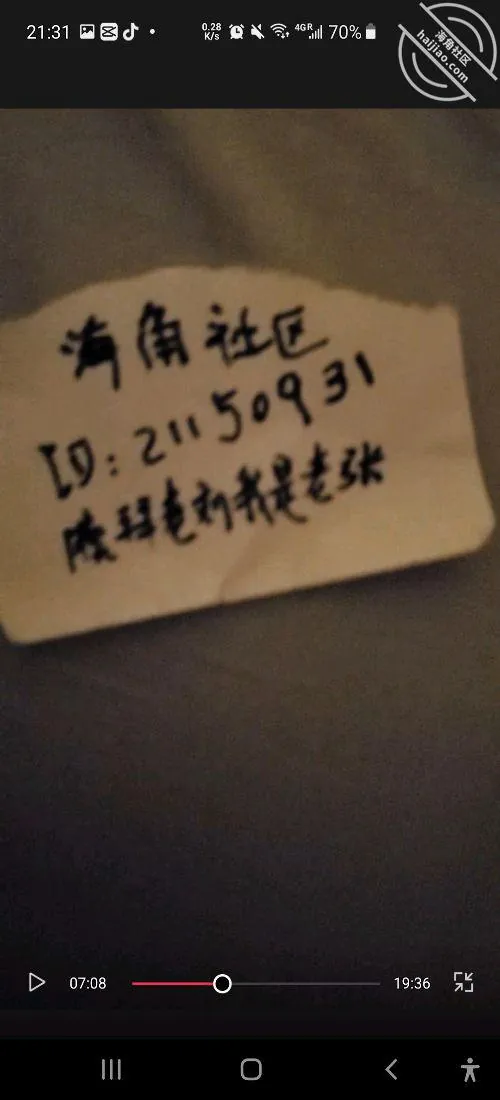 21:31 0.28 K/s 4GR 70%
海角社区
haijiao.com
海角社区
ID: 21150931
我是老张
07:08 19:36